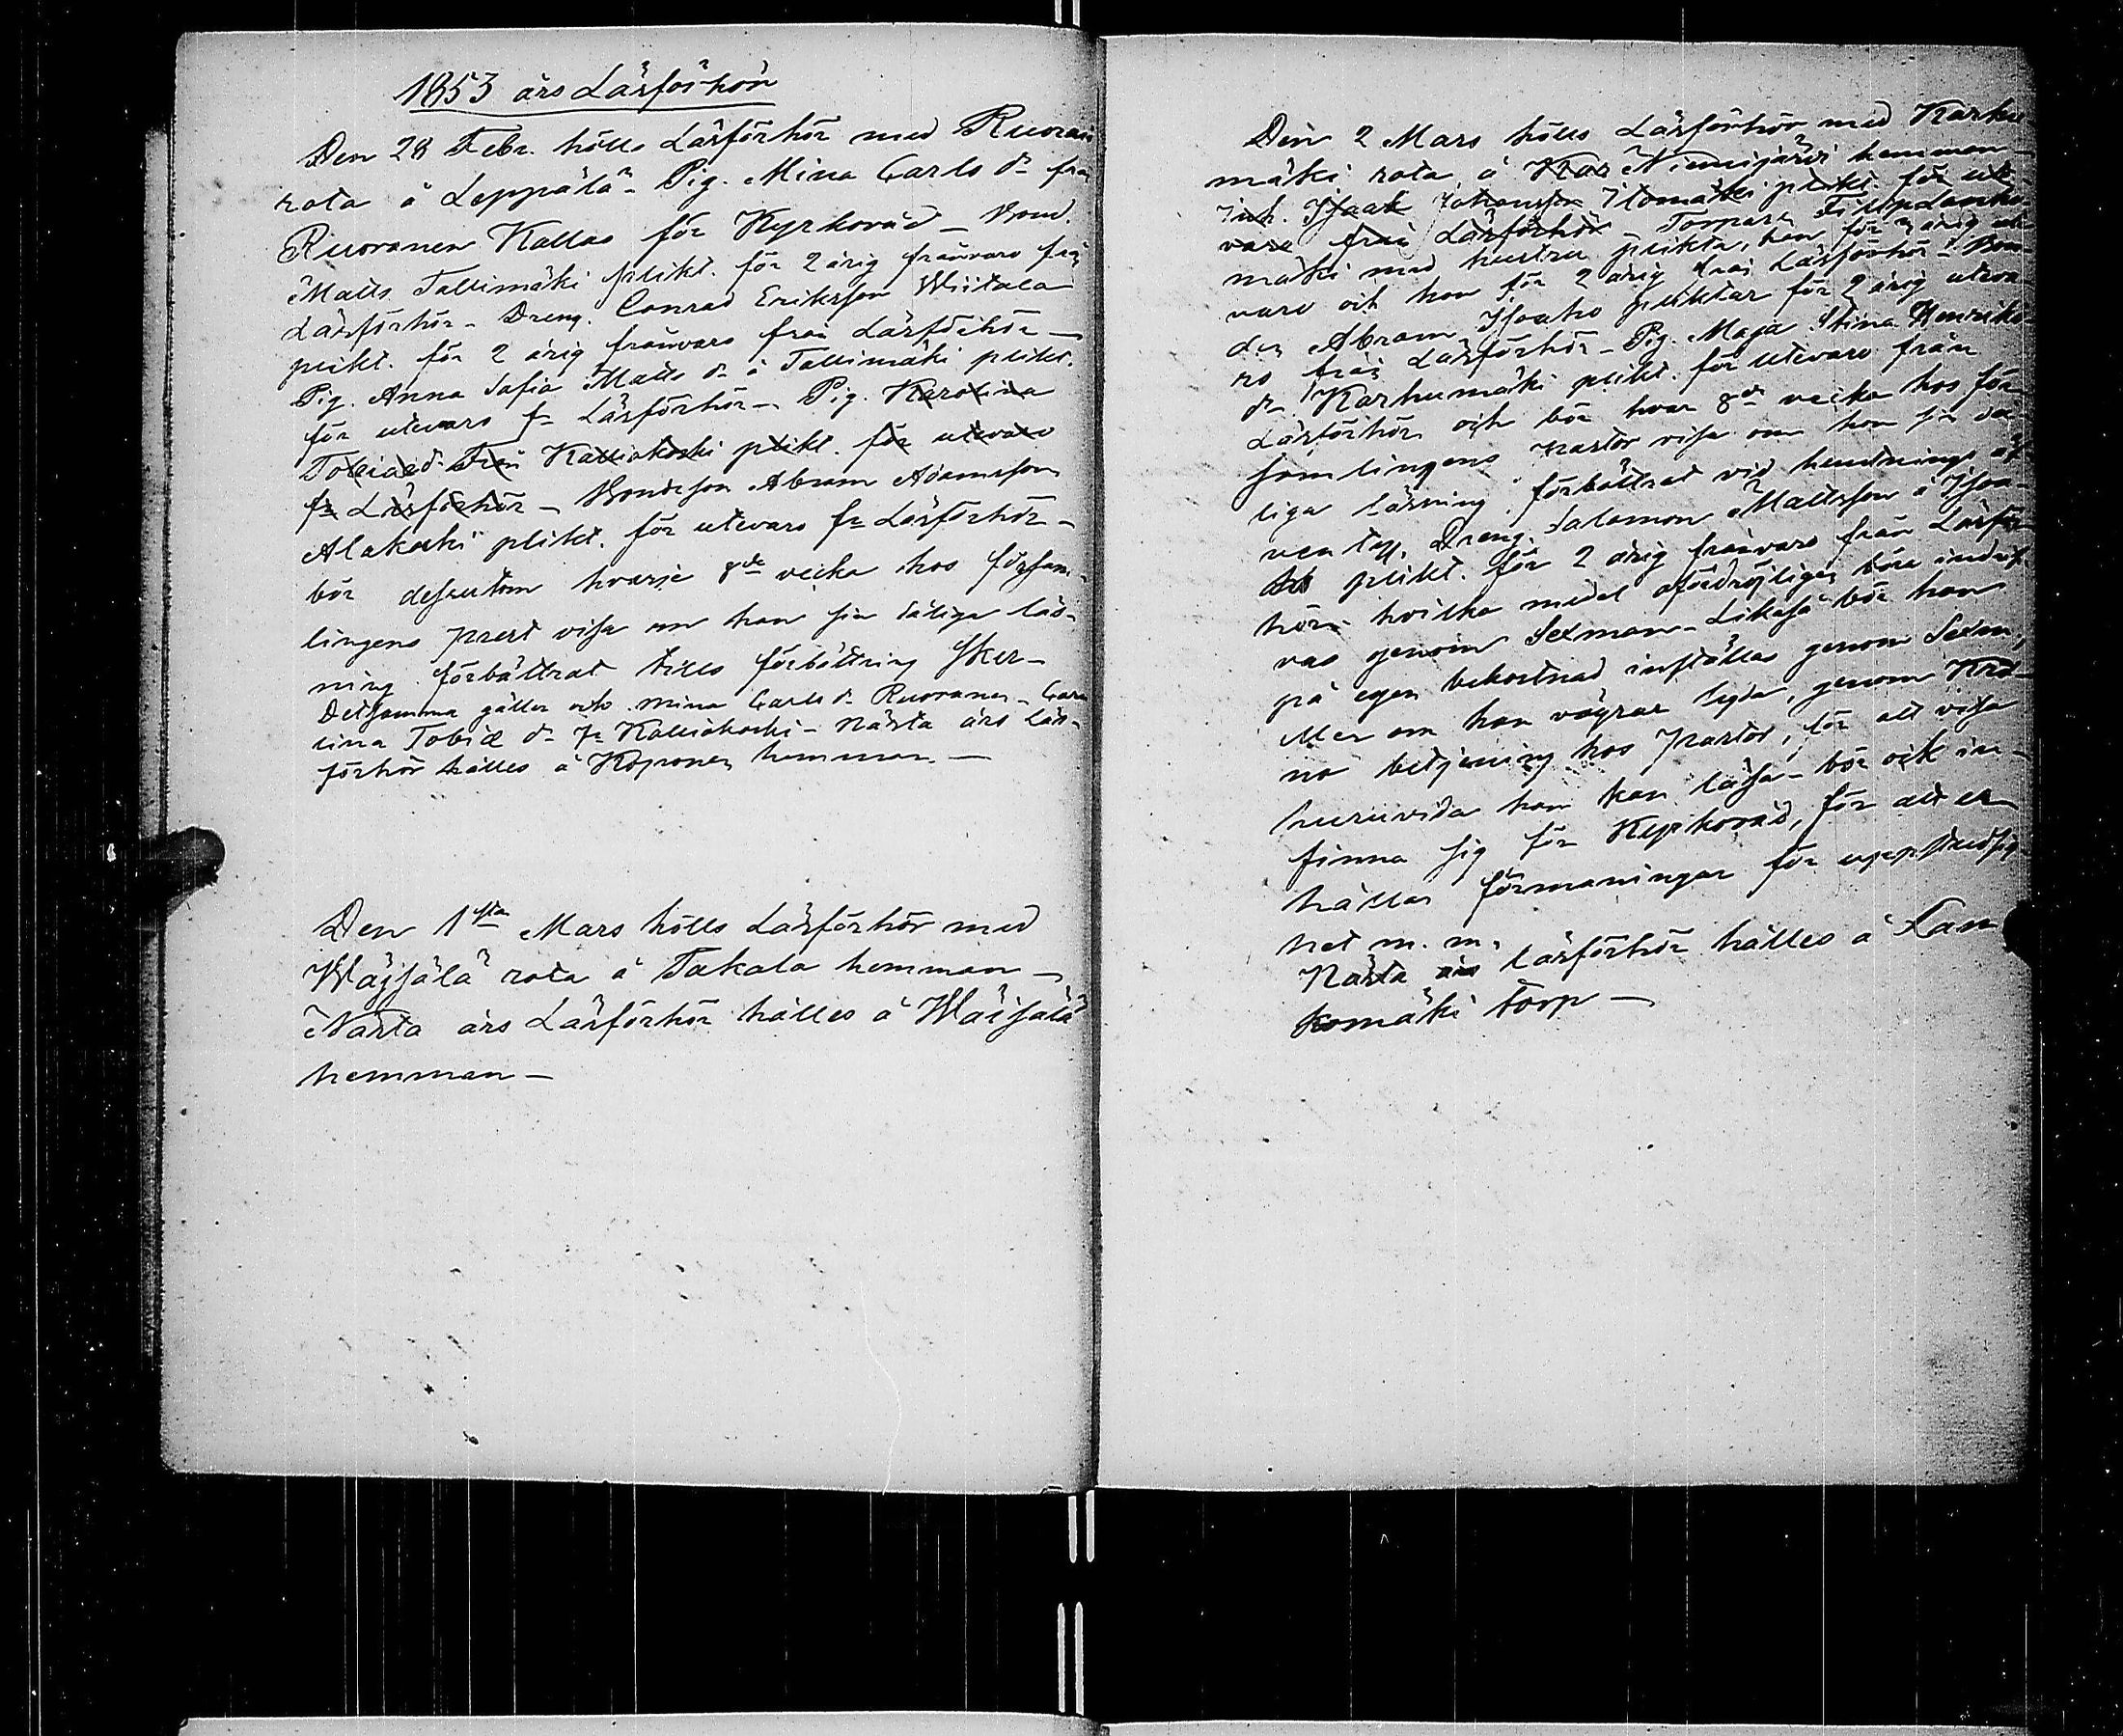 1853 års Läsförhör
Den 28 Febr. hölls Läsförhör med Ruoranen
rota å Leppälä - Pig. Mina Carls dr från
Ruoranen Kallas för Kyrkoråd - Bond.
Matts Tallimäki plikt. för 2 årig frånvaro från
Läsförhör - Dreng. Conrad Eriksson Wiitala
plikt. för 2 årig frånvaro från Läsförhör -
Pig. Anna Safia Matts dr å Tallimäki plikt.
för utevaro fr Läsförhör - Pig. Karolina
Tobiaed. från Kalliokoski plikt. för utevaro
fr Läsförhör - Bondeson Abram Adamsson
Alakoski plikt. för utevaro fr Läsförhör -
bör dessutom hvarje 8de vecka hos försam-
lingens prest visa om han sin låliga läs-
ning förbättrat tills förbättring sker -
Detsamma gäller ock Mina Carls dr Ruoranen - Caro
lina Tobiæ dr fr Kalliokoski - Nästa års Läs-
förhör hålles å Koponen hemman -
Den 1sta Mars hölls Läsförhör med
Wäisälä rota å Takala hemman -
Nästa års Läsförhör hålles å Wäisälä
hemman -
Den 2 Mars hölls Läsförhör med Karhu
mäki rota å Kar Niemijärvi hemman
Inh. Isaak Johansson Ilomäki plikt. för ute-
varo från Läsförhör - Torpare
mäki med hustru plikta, han för 3 årig ute
varo och hon för 2 årig från Läsförhör - Bon-
den Abram Isaaks pliktar för 2 årig uteva
ro från Läsförhör - Pig. Maja Stina Henriks
dr Karhumäki plikt. för utevaro från
Läsförhör och bör hvar 8de vecka hos för-
samlingens pastor visa om hon sin då-
liga läsning förbättrat vid hemtnings äf-
ventyr. Dreng. Salomon Mattsson å
plikt. för 2 årig frånvaro från Läsför-
hör hvilka medel ofördröjligen böra indrif-
vas genom Sexman - Likaså bör han
på egen bekostnad inställas genom Sexm,
eller om han vägrar lyda, genom
no betjening hos pastor, för att visa
huruvida han kan läsa - bör ock in-
finna sig för Kyrkoråd, för att er-
hålla förmaningar för uppstudsig
het m. m.
Nästa års läsförhör hålles å Lam
komäki torp -